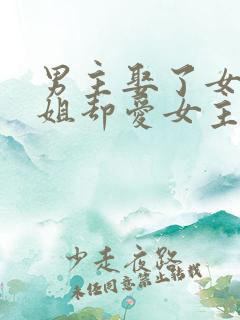 男主娶了女
姐却爱女主
少走夜路
未经同意禁止转载